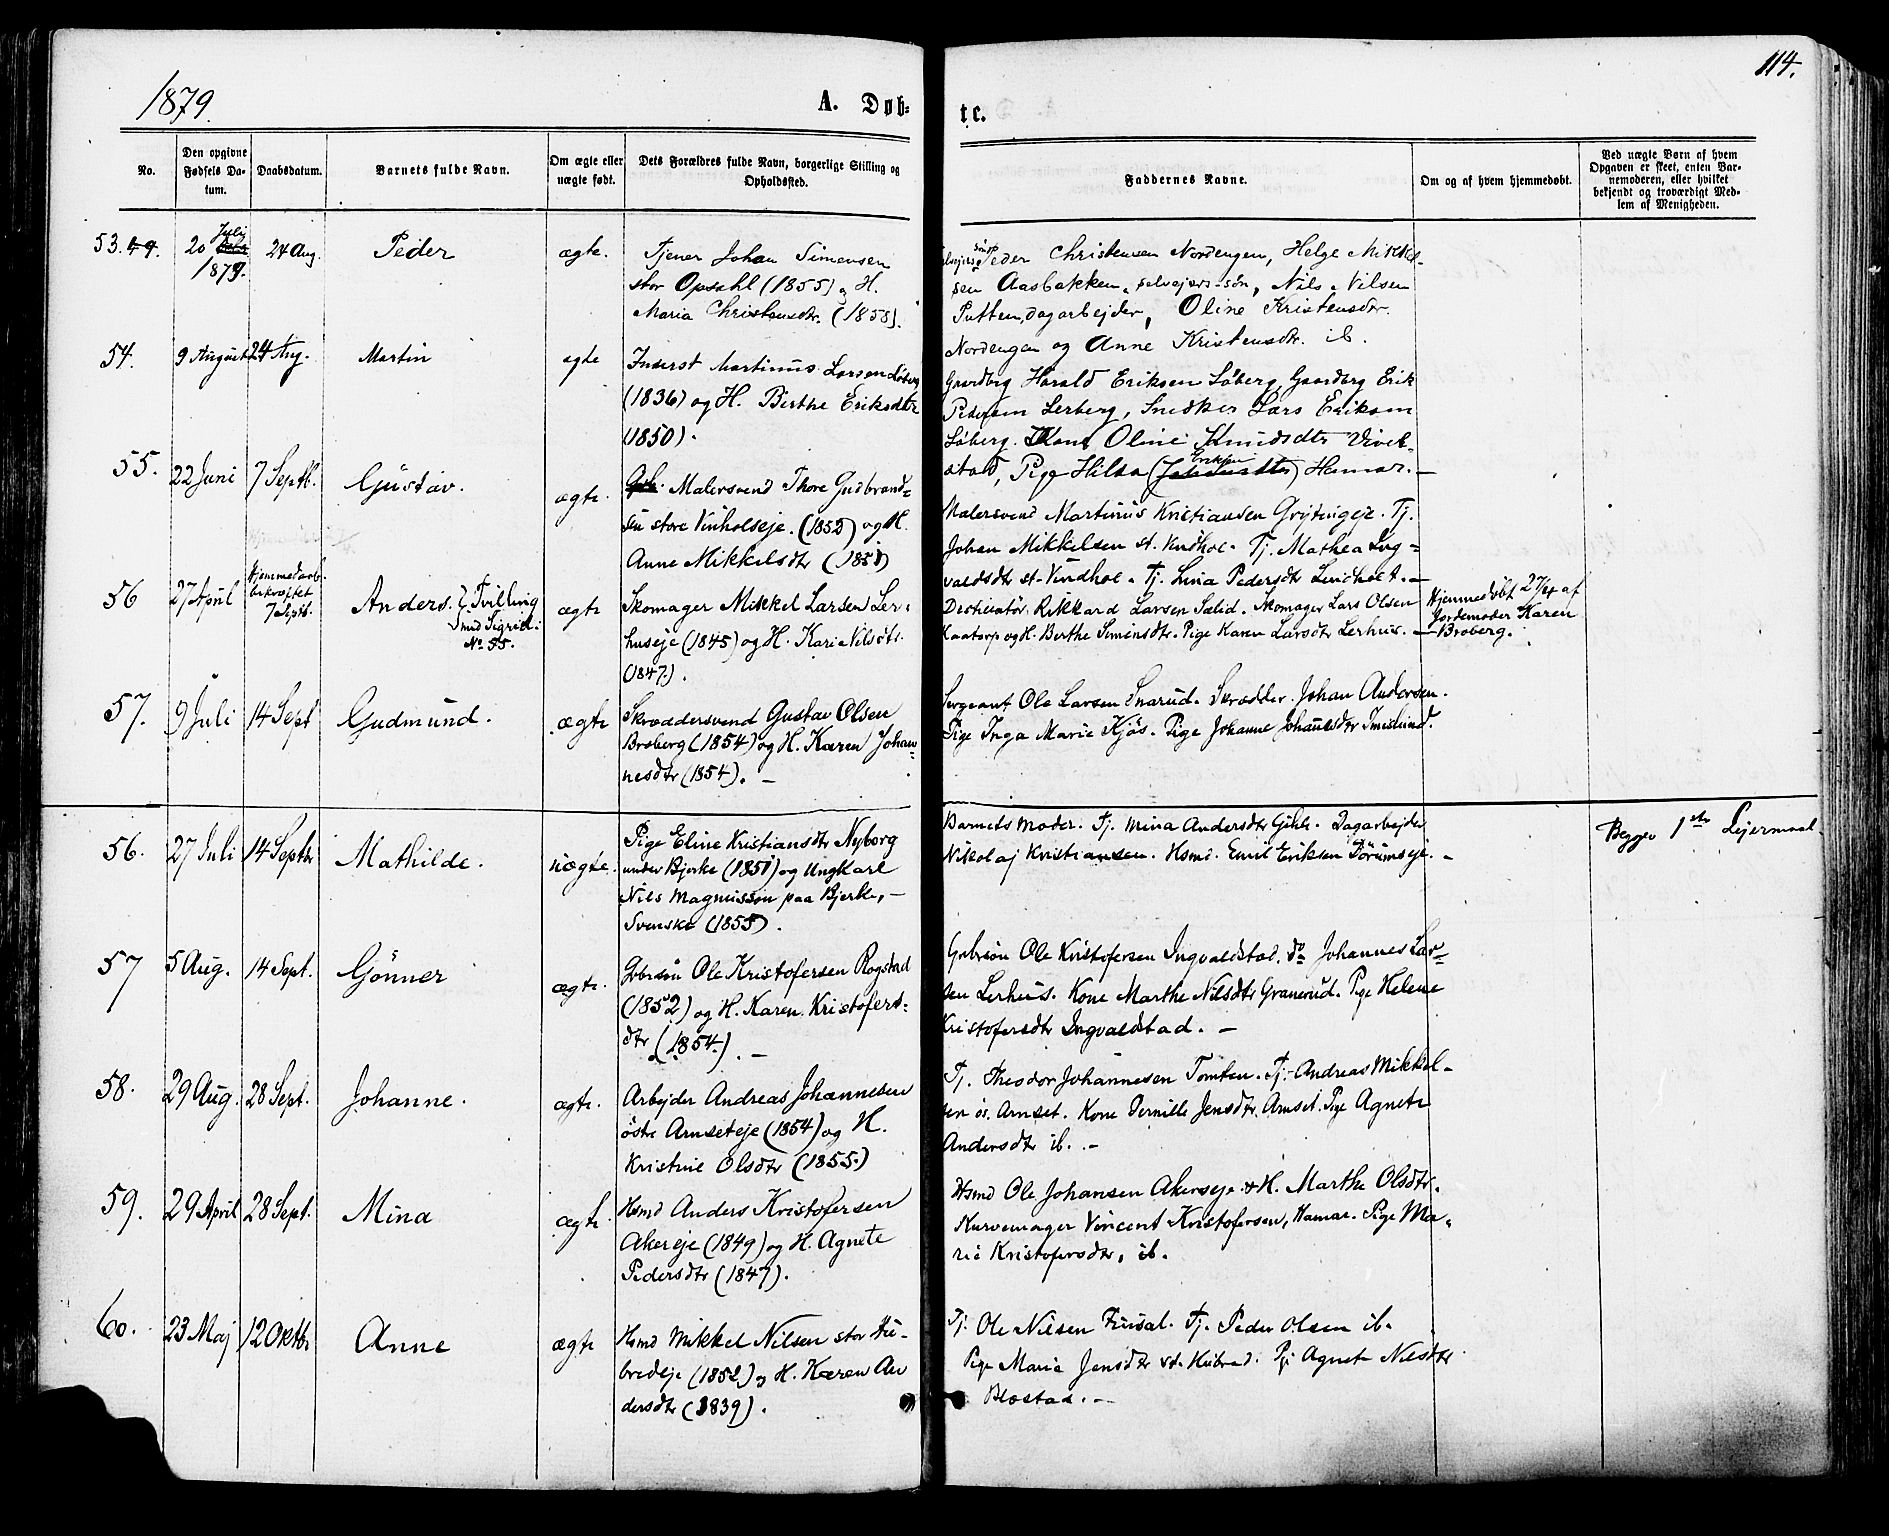 1879.
A. Døb-
te.
114.
No.
Den opgivne
Fødsels Da-
tum.
Daabsdatum.
Barnets fulde Navn.
Om ægte eller
uægte født.
Dets Forældres fulde Navn, borgerlige Stilling og
Opholdssted.
Faddernes Navne.
Om og af hvem hjemmedøbt.
Ved uægte Børn af hvem
Opgaven er skeet, enten Bar-
nemoderen, eller hvilket
bekjendt og troværdigt Med-
lem af Menigheden.
53.
20 Juli
1879.
24 Aug.
Peder
ægte.
Tjener Johan Simensen
stor Opsahl (1855) og H.
Maria Christensdtr. (1858).
Peder Christensen Nordengen, Helge Mikkel-
sen Aasbakken, selvejers-søn, Nils Nilsen
Putten, dagarbejder, Oline Kristensdtr.
Nordengen og Anne Kristensdtr. ib.
54.
9 August
24 Aug.
Martin
ægte
Inderst Martinus Larsen Løberg
(1836) og H. Berthe Eriksdtr
(1850).
Gaardbrg Harald Eriksen Løberg, Gaardbrg Erik
Pedersen Lerberg, Snedker Lars Eriksen
Løberg. Kone Oline Knudsdtr Vivel-
stad, Pige Hilda Eriksen Hamar. —
55.
22 Juni
7 Septb.
Gustav.
ægte.
Malersvend Thore Gudbrand-
sen store Vindholseje. (1852) og H.
Anne Mikkelsdtr (1851)
Malersvend Martinus Kristiansen Grytingeje. Tj.
Johan Mikkelsen st. Vindhol. Tj. Mathea Ing-
valdsdtr st. Vindhol. Tj. Lina Pedersdtr Lindholt. —
56
27 April
Hjemmedaab.
bekræftet
7 Septb.
Anders. } Tvilling
med Sigrid.
No 55.
ægte
Skomager Mikkel Larsen Ler-
huseje (1845) og H. Kari Nilsdtr.
(1847).
Destinatør. Rikkard Larsen Sælid. Skomager Lars Olsen
Kaatorp og H. Berthe Simensdtr. Pige Karen Larsdtr Lerhus. —
Hjemmedøbt 27/4 af
Jordemoder Karen
Broberg.
57.
9 Juli
14 Sept
Gudmund.
ægte
Skræddersvend Gustav Olsen
Broberg (1854) og H. Karen Johan-
nesdtr (1854). —
Sergeant Ole Larsen Snarud. Skrædder Johan Andersen.
Pige Inga Marie Kjøs. Pige Johanne Johannesdtr Imislund.
56.
27 Juli
14 Septbr
Mathilde.
uægte.
Pige Eline Kristiansdtr Nyborg
under Bjerke (1851) og Ungkarl
Nils Magnusson paa Bjerke, —
Svenske (1855).
Barnets Moder. Tj. Mina Andersdtr Gihle. Dagarbejder
Nikolaj Kristiansen. Hsmd. Emil Eriksen Børumseje. –
Begges 1ste Lejermaal.
57
5 Aug.
14 Sept.
Gönner
ægte.
Gbrsøn Ole Kristofersen Rogstad
(1852) og H. Karen Kristofers-
dtr (1854.). —
Gbrsøn Ole Kristofersen Ingvaldstad. do Johannes Lar-
sen Lerhus. Kone Marthe Nilsdtr Granerud. Pige Helene
Kristofersdtr Ingvaldstad. —
58.
29 Aug.
28 Sept.
Johanne.
ægte.
Arbejder Andreas Johannesen
østre Arnseteje (1854) og H.
Kristine Olsdtr (1855.)
Tj. Theodor Johannesen Tomten. Tj. Andreas Mikkel-
sen ös. Arnset. Kone Pernille Jensdtr. Arnset. Pige Agnete
Andersdtr ib. –
59.
29 April
28 Sept.
Mina
ægte.
Hsmd Anders Kristofersen
Akereje (1849) og H. Agnete
Pedersdtr (1847).
Hsmd Ole Johansen Akerseje & H. Marthe Olsdtr.
Kurvemager Vincent Kristofersen, Hamar. Pige Ma-
rie Kristofersdtr, ib.
60.
23 Maj
12 Oktbr
Anne
ægte
Hsmd Mikkel Nilsen stor Hu-
bredeje (1852) og H. Karen An
dersdtr (1839).
Tj. Ole Nilsen Furusal. Tj. Peder Olsen ib.
Pige Maria Jensdtr st. Hubred. Pg. Agnete Nilsdtr
Blæstad. —